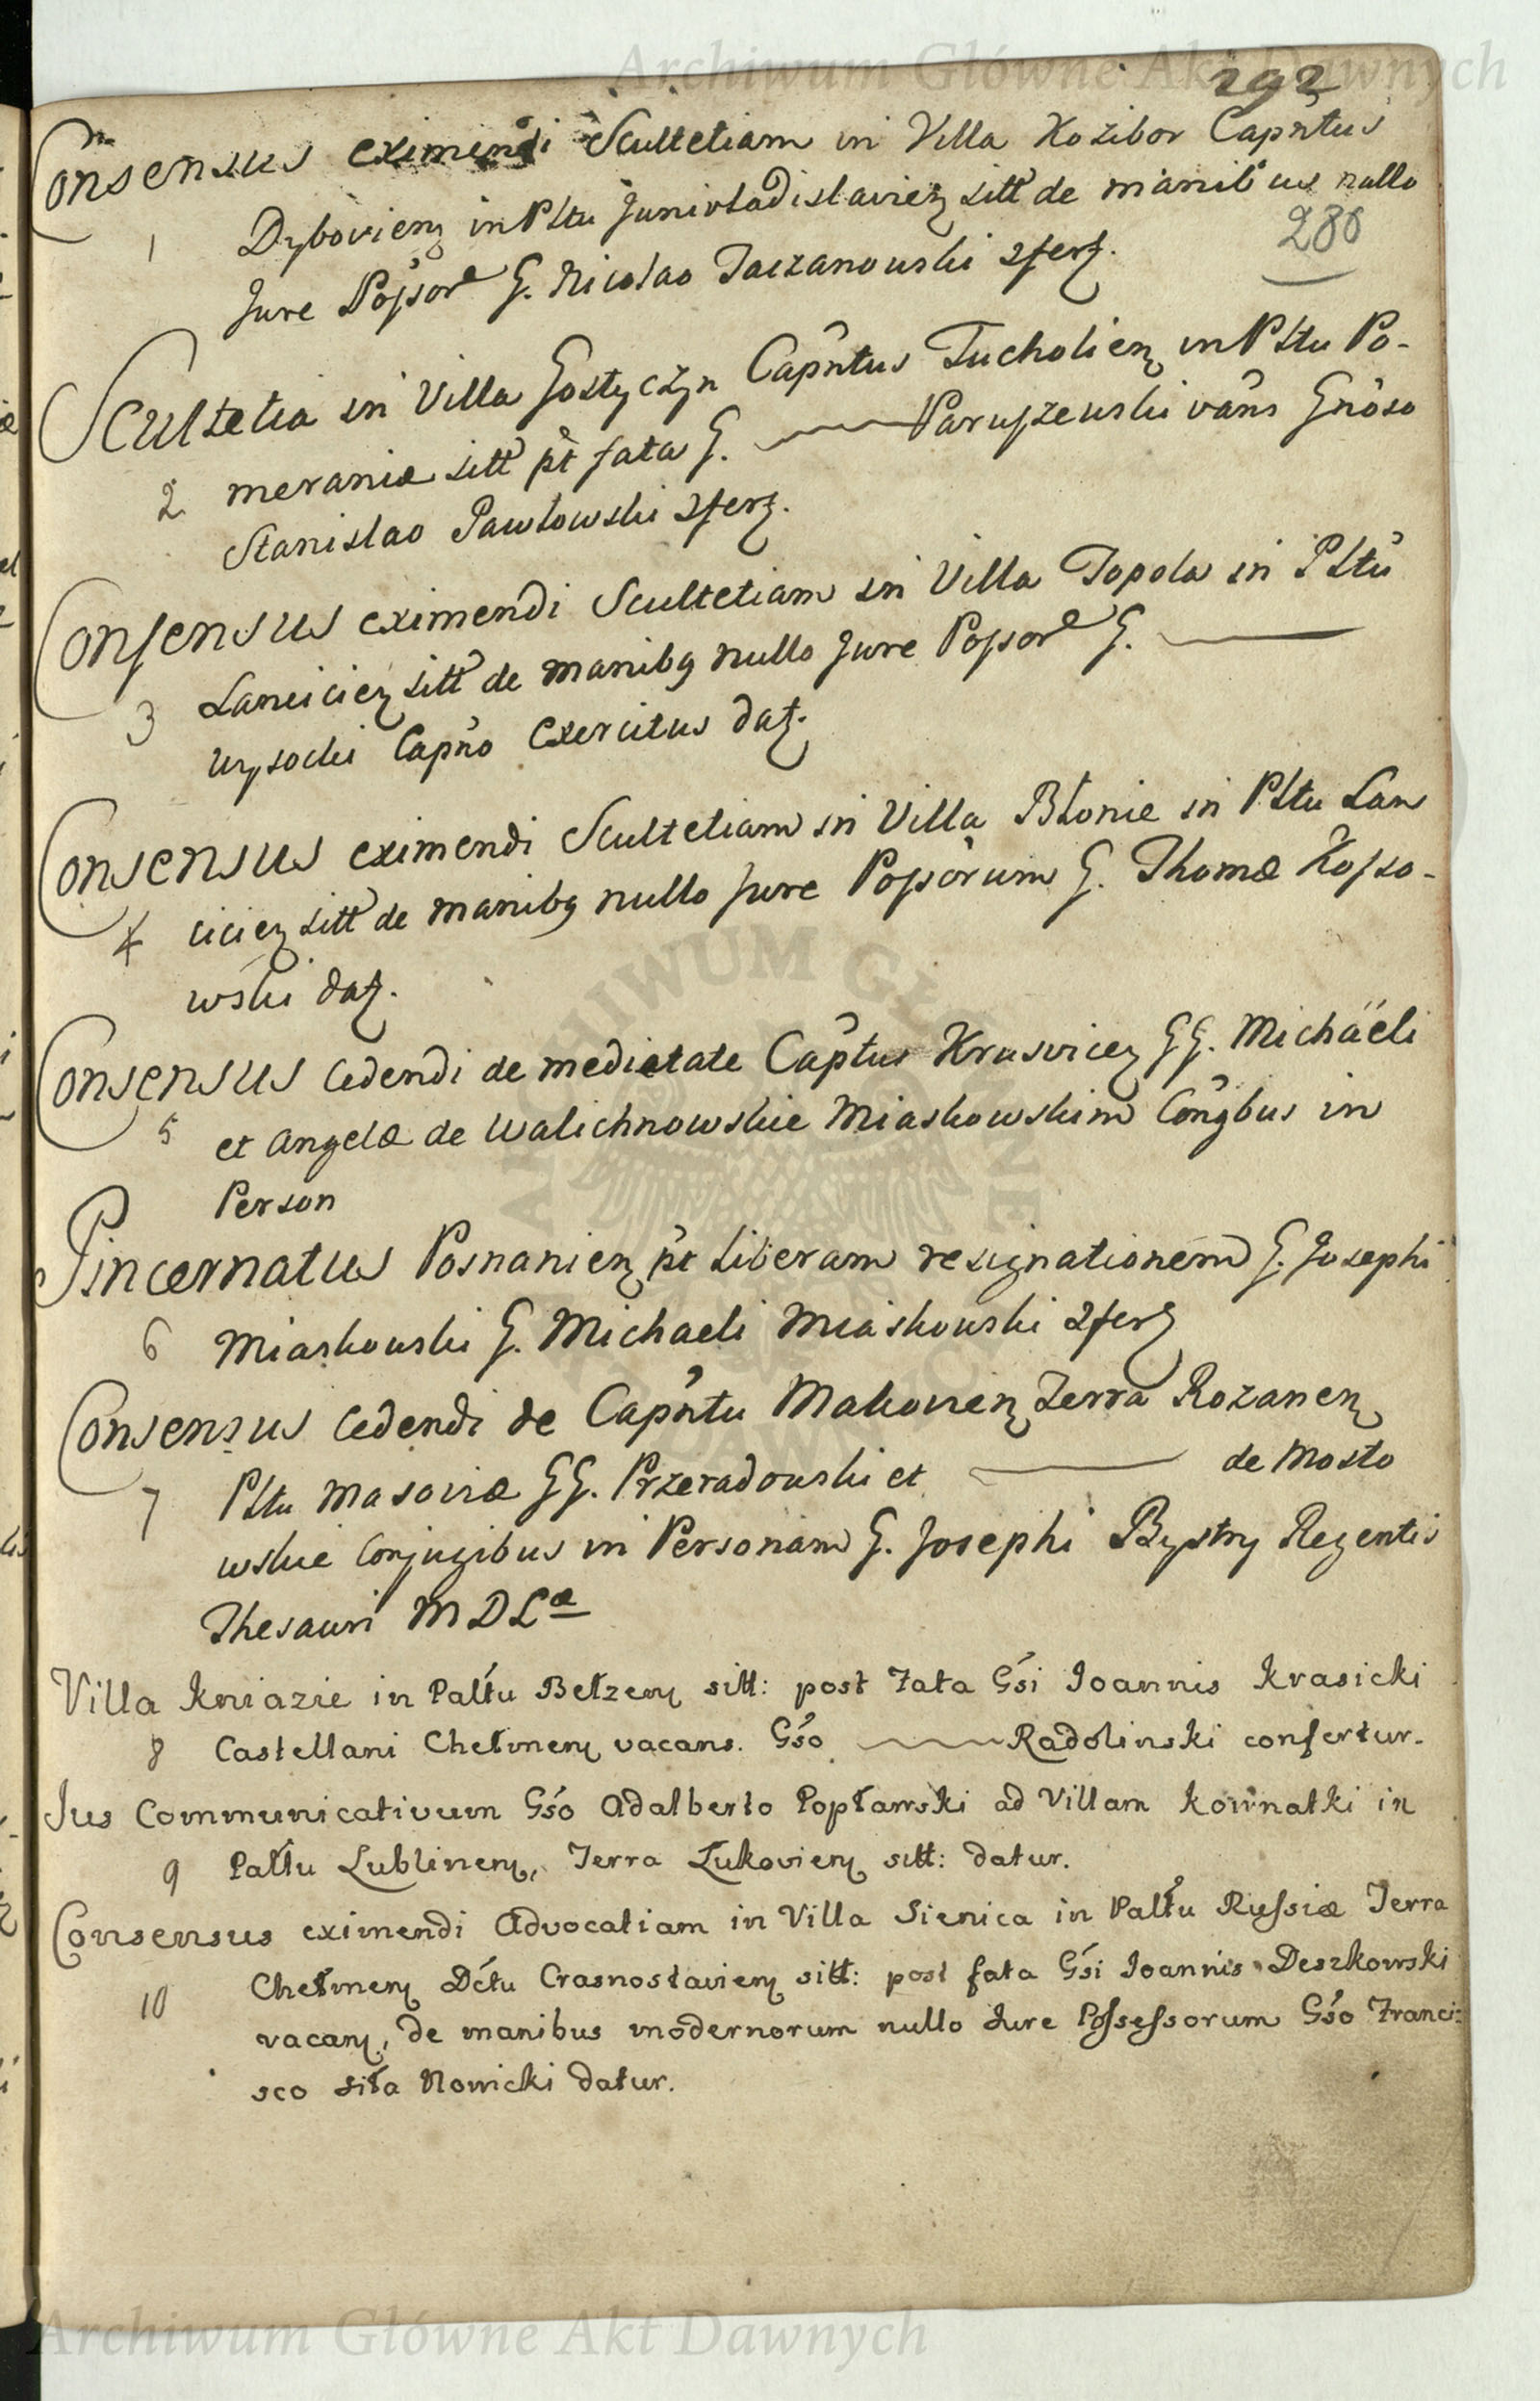 Archiwum Główne Akt Dawnych
292
Consensus eximendi Scultetiam in Villa Kozibor Capntus
1 Dybovien in Pltu Junivladislavien sitt de manibus nullo
280
Jure Possore G. Nicolao Taczanowski 2fert.
Scultetia in Villa Gostyczyn Capntus Tucholien in Pltu Po-
2 meraniæ sitt pt fata G. —— Paruszewski vans Gnoso
Stanislao Pawłowski 2fert.
Consensus eximendi Scultetiam in Villa Topola in Pltu
3 Lanciciens sitt de manibq nullo Jure Possore G. ——
Wysocki Capno Exercitus dat.
Consensus eximendi Scultetiam in Villa Błonie in Pltu Lan
4 cicien sitt de manibq nullo Jure Possorum G. Thomæ Kosso-
wski dat.
Consensus cedendi de medietate Captus Krusvicen GG. Michäeli
5 et Angelæ de Walichnowskie Miaskowskim Congbus in
Person
Pincernatus Posnanien pt Liberam resignationem G. Josephi
6 Miaskowski G. Michaeli Miaskowski 2fert
Consensus Cedendi de Capntu Makovien Terra Rozanen
7 Pltu Masoviæ GG. Przeradowski et —— de Mosto
wskie Conjugibus in Personam G. Josephi Bystry Regentis
Thesauri M D Læ
Villa Kniazie in Paltu Bełzen sitt: post Fata Gsi Joannis Krasicki
8 Castellani Chełmen vacans. Gso —— Radolinski confertur.
Jus Communicativum Gso Adalberto Popławski ad Villam Kownatki in
9 Paltu Lublinen, Terra Łukovien sitt: datur.
Consensus eximendi Advocatiam in Villa Sienica in Paltu Russiæ Terra
10 Chełmen Dctu Crasnostavien sitt: post fata Gsi Joannis Deszkowski
vacan, de manibus modernorum nullo Jure Possessorum Gso Franci:
sco Siła Nowicki datur.
Archiwum Główne Akt Dawnych